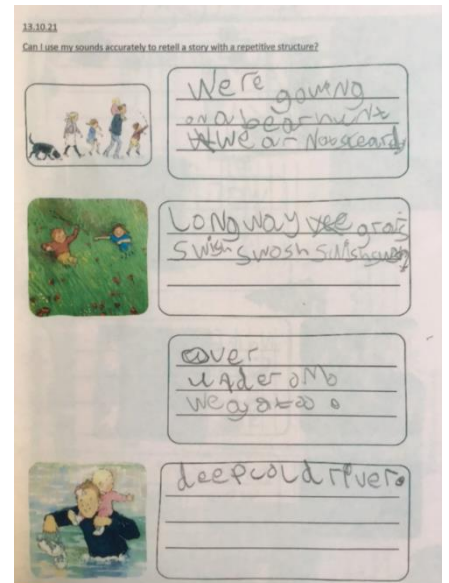 13.10.21
Can I use my sounds accurately to retell a story with a repetitive structure?
Were gowing
on a bear hunt
We ar not sceard
Long way grais
Swish swosh Swish
over
under o No
We
deep cold river.